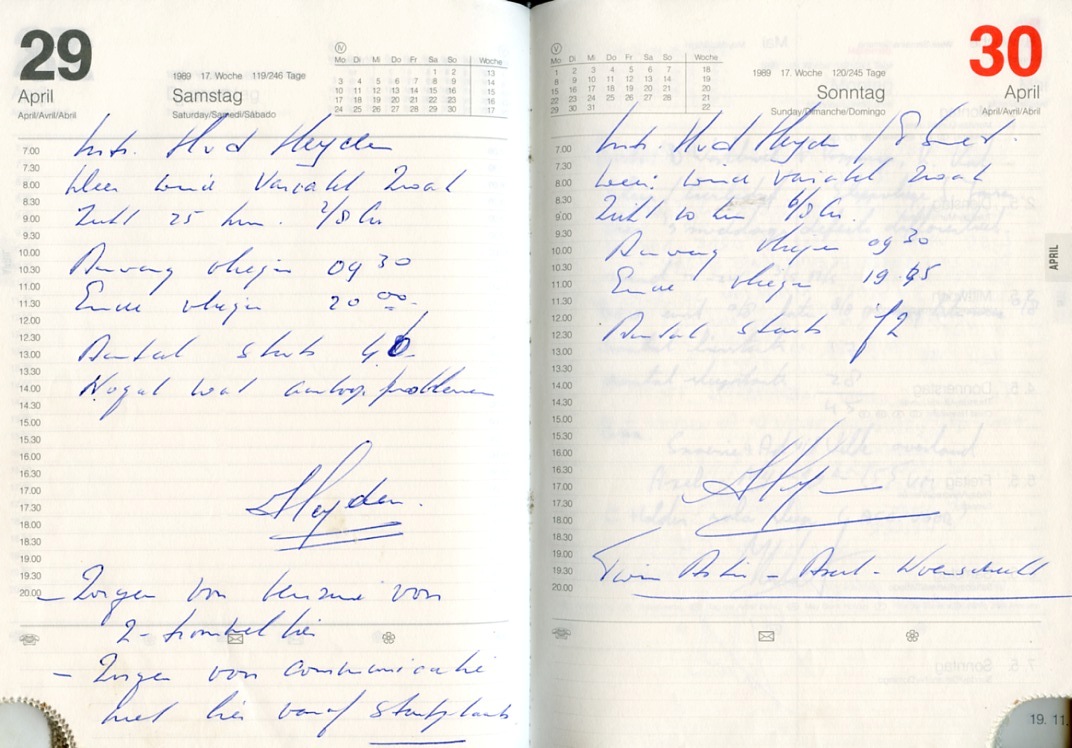 29
April
April/Avril/Abril
1989 17. Woche 119/246 Tage
Samstag
Saturday/Samedi/Sábado
IV
Mo Di Mi Do Fr Sa So Woche
1 2 13
3 4 5 6 7 8 9 14
10 11 12 13 14 15 16 15
17 18 19 20 21 22 23 16
24 25 26 27 28 29 30 17
7.00 Instr. Hvd Heyden
8.00 Weer wind variabel zwak
8.30
9.00 Zicht 25 km. 2/8 Cu
9.30
10.00 Aanvang vliegen 09 30
10.30
11.00
11.30 Einde vliegen 20 00
12.00
12.30
13.00 Aantal starts 46
13.30
14.00 Nogal wat aanloop problemen
14.30
15.00
15.30
16.00
16.30
17.00
17.30 Heyden.
18.00
18.30
19.00
19.30
20.00 – Zorgen van benzine voor
2-trommel lier
– Zorgen voor communicatie
met lier vanaf startplaats
V
Mo Di Mi Do Fr Sa So Woche
1 2 3 4 5 6 7 18
8 9 10 11 12 13 14 19
15 16 17 18 19 20 21 20
22 23 24 25 26 27 28 21
29 30 31 22
1989 17. Woche 120/245 Tage
Sonntag
Sunday/Dimanche/Domingo
30
April
April/Avril/Abril
7.00 Instr. Hvd Heyden /
8.00 Weer: wind variabel zwak
8.30
9.00 Zicht 10 km 6/8 Cu.
9.30
10.00 Aanvang vliegen 09 30
10.30
11.00 Einde vliegen 19.45
11.30
12.00
12.30 Aantal starts 72
13.00
13.30
14.00
14.30
15.00
15.30
16.00
16.30
17.00
17.30
18.00
18.30
19.00
19.30 Twin Astir – Axel – Woensdrecht
20.00
APRIL
19. 11.